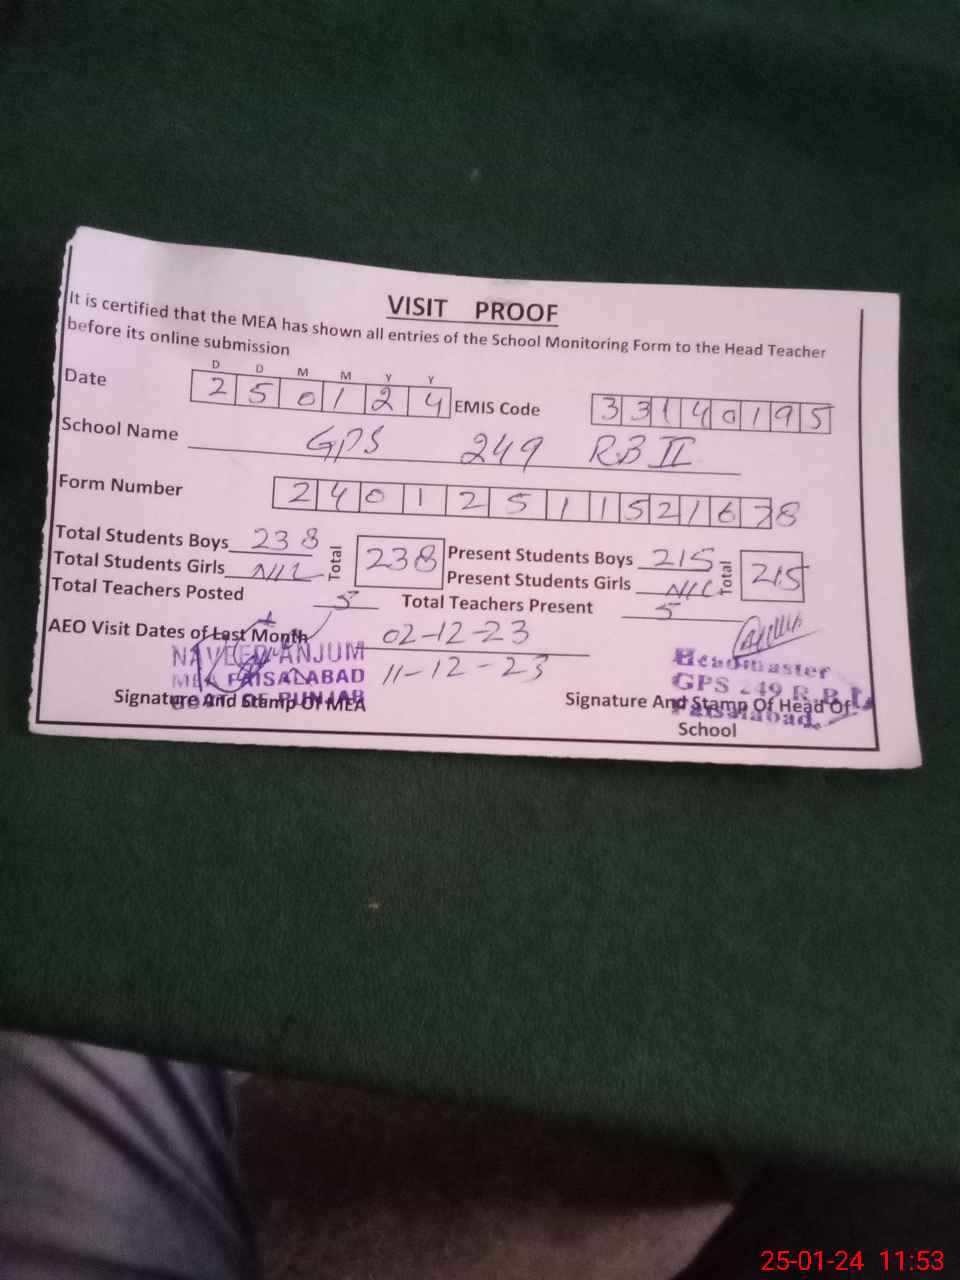 VISIT PROOF
It is certified that the MEA has shown all entries of the School Monitoring Form to the Head Teacher
before its online submission
D D M M Y Y
Date 2 5 0 1 2 4 EMIS Code 3 3 1 4 0 1 9 5
School Name GPS 249 RB II
Form Number 2 4 0 1 2 5 1 1 5 2 1 6 7 8
Total Students Boys 238 Total 238 Present Students Boys 215 Total 215
Total Students Girls NIL Present Students Girls NIL
Total Teachers Posted 5 Total Teachers Present 5
AEO Visit Dates of Last Month 02-12-23
11-12-23
NAVEED ANJUM
MEA FAISALABAD
GOVT OF PUNJAB
Signature And Stamp Of MEA
Headmaster
GPS 249 R.B
Faisalabad.
Signature And Stamp Of Head Of
School
25-01-24 11:53